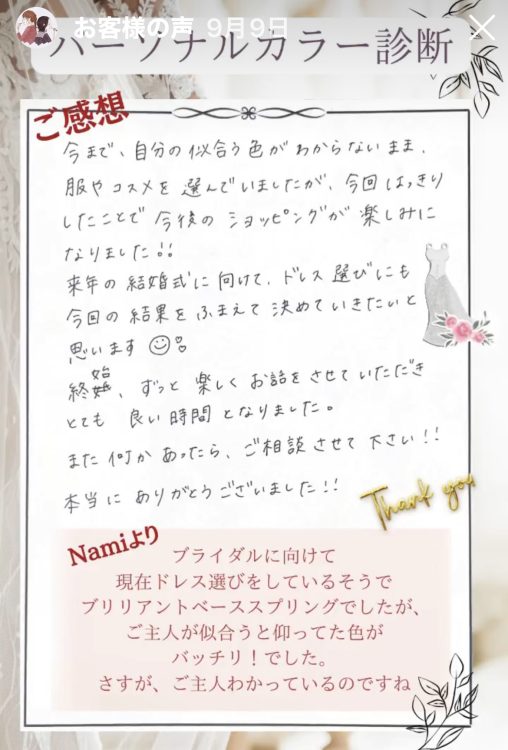 お客様の声 9月9日
パーソナルカラー診断
ご感想
今まで、自分の似合う色がわからないまま、
服やコスメを選んでいましたが、今回はっきり
したことで今後のショッピングが楽しみに
なりました!!
来年の結婚式に向けて、ドレス選びにも
今回の結果をふまえて決めていきたいと
思います
終始、ずっと楽しくお話をさせていただき
とても良い時間となりました。
また何かあったら、ご相談させて下さい!!
本当にありがとうございました!!
Thank you
Namiより
ブライダルに向けて
現在ドレス選びをしているそうで
ブリリアントベーススプリングでしたが、
ご主人が似合うと仰ってた色が
バッチリ！でした。
さすが、ご主人わかっているのですね